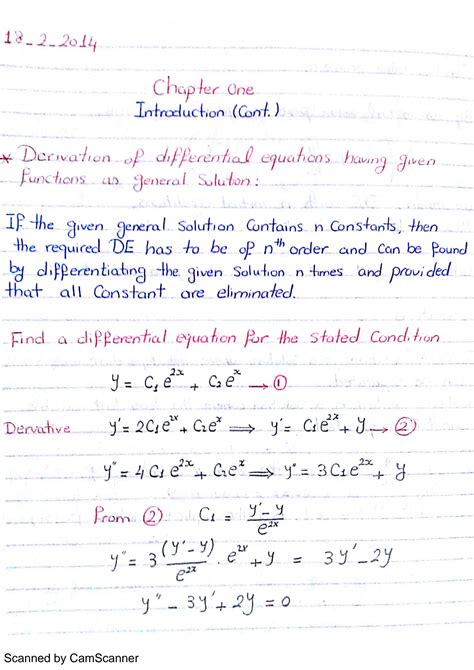 18_2_2014
Chapter One
Introduction (Cont.)
* Derivation of differential equations having given
functions as general Solution:
If the given general solution Contains n Constants, then
the required DE has to be of nth order and Can be found
by differentiating the given Solution n times and provided
that all Constant are eliminated.
Find a differential equation for the Stated Condition
y = C₁e^2x + C₂e^x → ①
Dervative y' = 2C₁e^2x + C₂e^x ⟹ y' = C₁e^2x + y → ②
y" = 4C₁e^2x + C₂e^x ⟹ y" = 3C₁e^2x + y
From ② C₁ = (y' - y)/e^2x
y" = 3 (y' - y)/e^2x . e^2x + y = 3y' - 2y
y" - 3y' + 2y = 0
Scanned by CamScanner